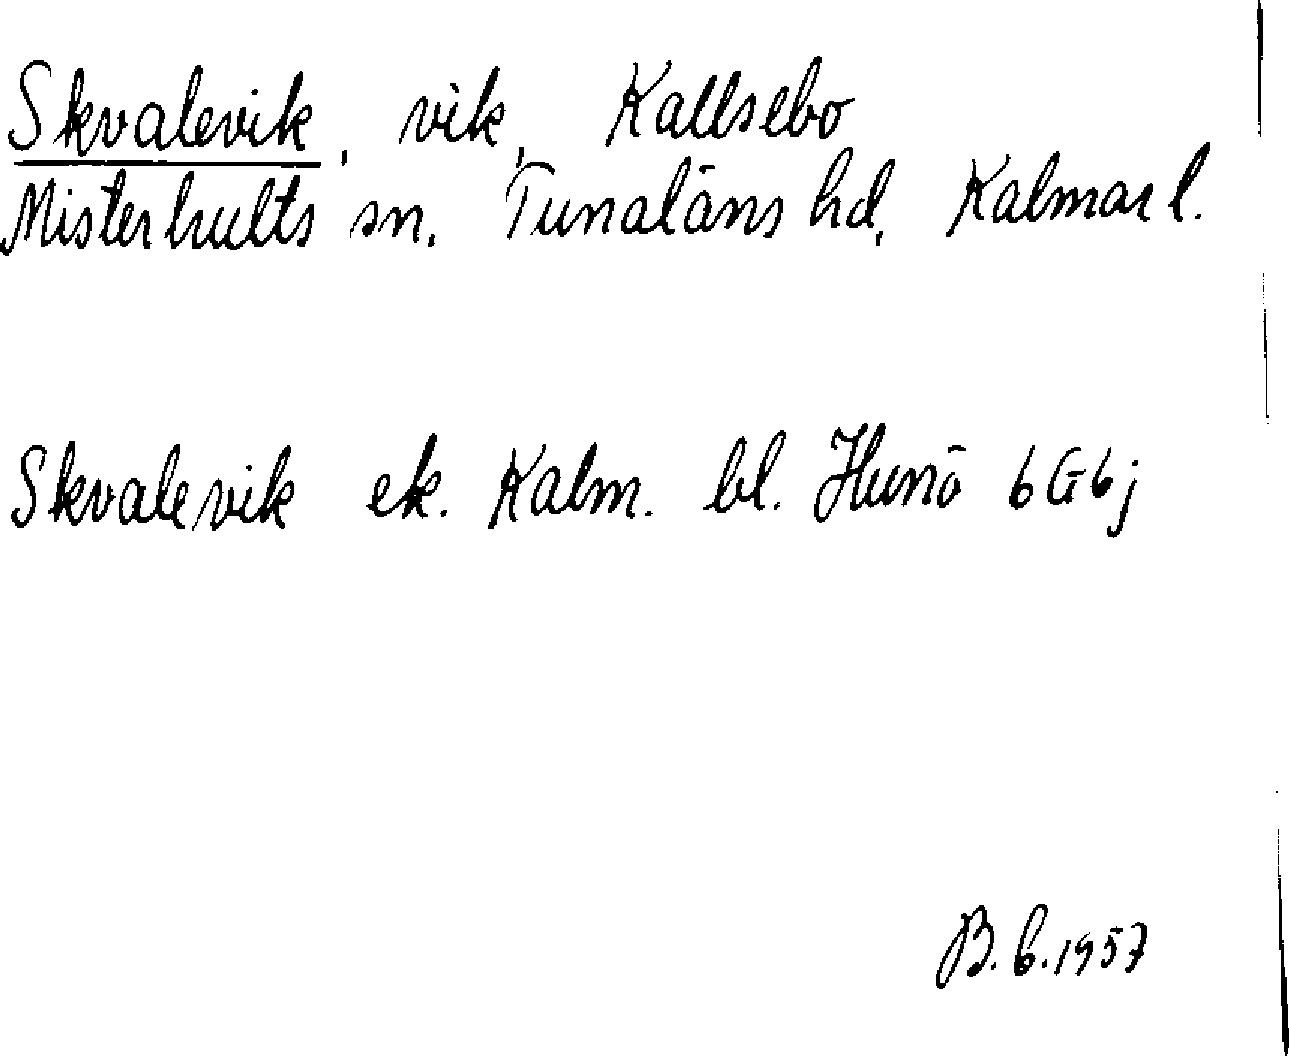 Skvalevik, vik, Kallsebo
Misterhults sn. Tunaläns hd, Kalmar l.
Skvalevik ek. Kalm. bl. Hunö 6G6j
B.b.1957